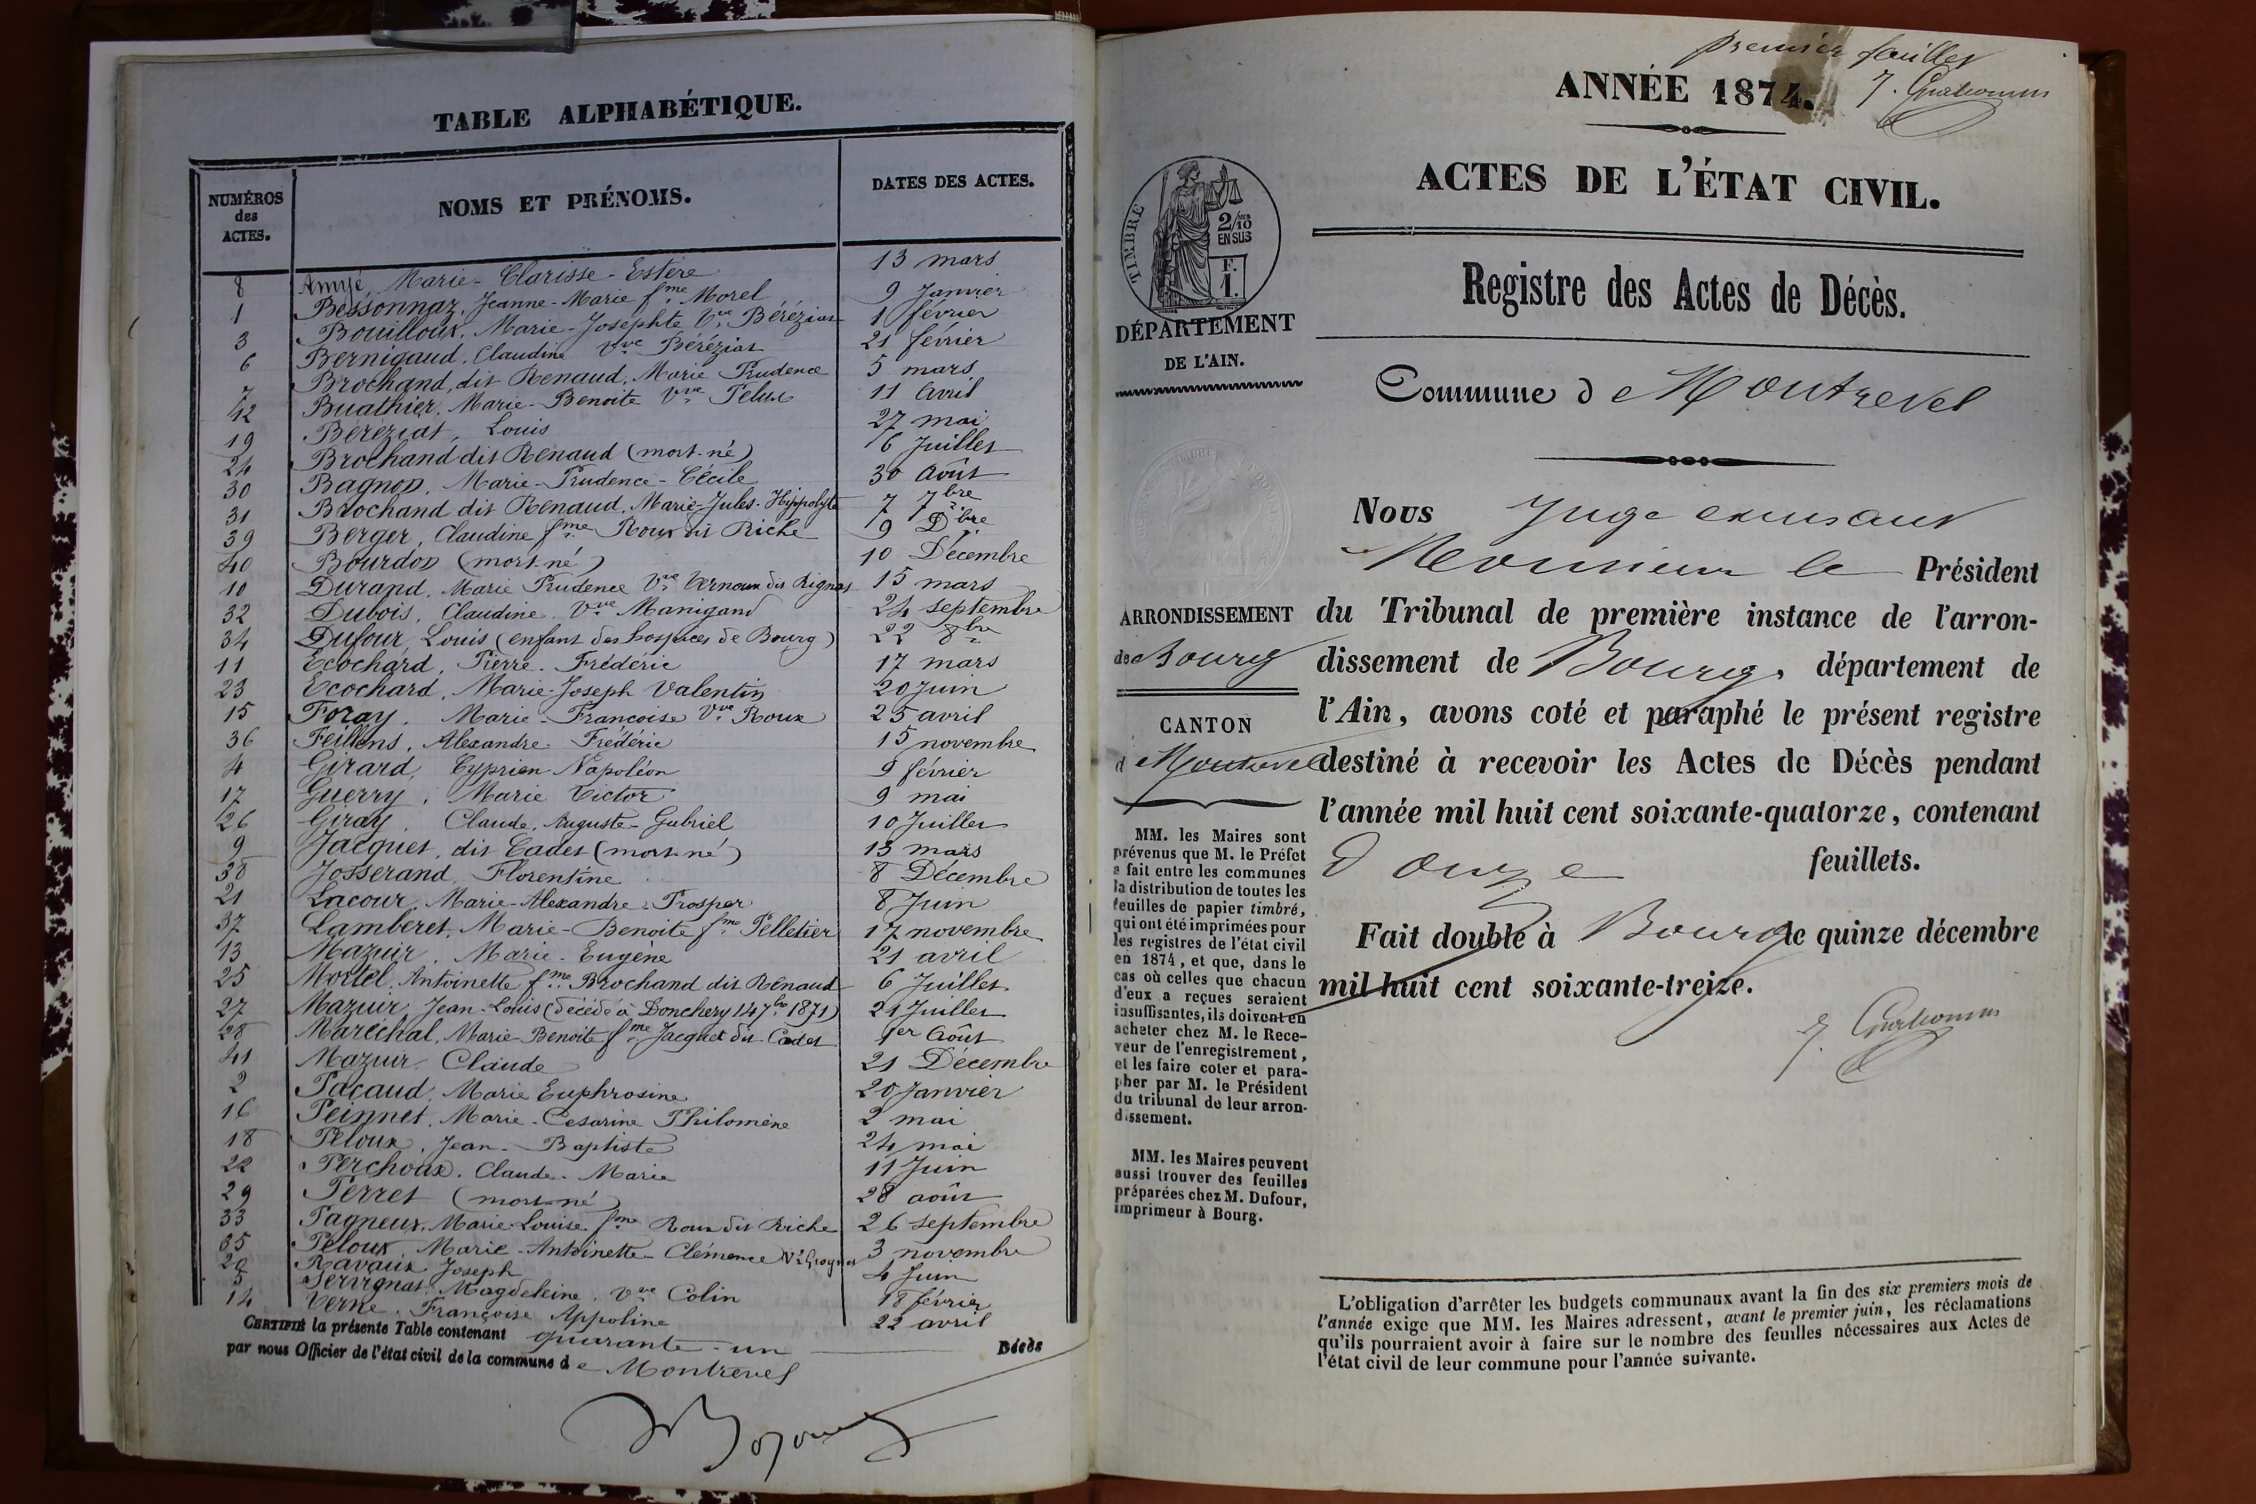 TABLE ALPHABÉTIQUE.
NUMÉROS des ACTES. NOMS ET PRÉNOMS. DATES DES ACTES.
8 Amyé, Marie-Clarisse-Estère 13 mars
1 Bessonnaz, Jeanne-Marie fme Morel 9 Janvier
3 Bouilloux, Marie-Josephte Vve Béréziat 1 février
6 Bernigaud, Claudine Vve Béréziat 21 février
7 Brochand, dit Renaud, Marie Prudence 5 mars
12 Buathier, Marie-Benoite Vve Pelux 11 avril
19 Béréziat, Louis 27 mai
24 Brochand dit Renaud (mort-né) 6 Juillet
30 Bagnod, Marie-Prudence-Cécile 30 Août
31 Brochand dit Renaud, Marie-Jules-Hippolyte 7 7bre
39 Berger, Claudine fme Roux dit Riche 9 Dbre
40 Bourdon (mort-né) 10 Décembre
10 Durand, Marie Prudence Vve Vernoux dit Rignas 15 mars
32 Dubois, Claudine, Vve Manigand 24 septembre
34 Dufour, Louis (enfant des hospices de Bourg) 22 8bre
11 Ecochard, Pierre-Frédéric 17 mars
23 Ecochard, Marie-Joseph Valentin 20 Juin
15 Foray, Marie-Françoise Vve Roux 25 avril
36 Feillens, Alexandre-Frédéric 15 novembre
4 Girard, Cyprien Napoléon 9 février
17 Guerry, Marie Victor 9 mai
26 Giray, Claude, Auguste-Gabriel 10 Juillet
9 Jacquet, dit Cadet (mort-né) 13 mars
38 Josserand, Florentine 8 Décembre
21 Lacour, Marie-Alexandre-Prosper 8 Juin
37 Lamberet, Marie-Benoite fme Pelletier 17 novembre
13 Mazuir, Marie-Eugène 21 avril
25 Mortel, Antoinette fme Brochand dit Renaud 6 Juillet
27 Mazuir, Jean-Louis (décédé à Donchery 14 7bre 1871) 21 Juillet
28 Maréchal, Marie Benoite fme Jacquet dit Cadet 1er Août
41 Mazuir Claude 21 Décembre
2 Pacaud, Marie Euphrosine 20 Janvier
16 Peinnet, Marie-Césarine Philomène 2 mai
18 Peloux, Jean-Baptiste 24 mai
22 Perchoux, Claude-Marie 11 Juin
29 Perret (mort-né) 28 août
33 Pagneux, Marie-Louise fme Roux dit Riche 26 septembre
35 Peloux, Marie-Antoinette-Clémence 3 novembre
20 Ravaux Joseph 4 Juin
5 Servignat, Magdeleine, Vve Colin 18 février
14 Verne, Françoise Appoline 22 avril
CERTIFIÉ la présente Table contenant quarante-un Décès
par nous Officier de l'état civil de la commune de Montrevel
premier feuillet
ANNÉE 1874.
ACTES DE L'ÉTAT CIVIL.
TIMBRE
2/10 EN SUS
F. 1.
DÉPARTEMENT
DE L'AIN.
Registre des Actes de Décès.
Commune de Montrevel
Nous Juge exerçant
Monsieur le Président
ARRONDISSEMENT
de Bourg
CANTON
d Montrevel
du Tribunal de première instance de l'arron-
dissement de Bourg, département de
l'Ain, avons coté et paraphé le présent registre
destiné à recevoir les Actes de Décès pendant
l'année mil huit cent soixante-quatorze, contenant
Douze feuillets.
Fait double à Bourg le quinze décembre
mil huit cent soixante-treize.
MM. les Maires sont
prévenus que M. le Préfet
a fait entre les communes
la distribution de toutes les
feuilles de papier timbré,
qui ont été imprimées pour
les registres de l'état civil
en 1874, et que, dans le
cas où celles que chacun
d'eux a reçues seraient
insuffisantes, ils doivent en
acheter chez M. le Rece-
veur de l'enregistrement,
et les faire coter et para-
pher par M. le Président
du tribunal de leur arron-
dissement.
MM. les Maires peuvent
aussi trouver des feuilles
préparées chez M. Dufour,
imprimeur à Bourg.
L'obligation d'arrêter les budgets communaux avant la fin des six premiers mois de
l'année exige que MM. les Maires adressent, avant le premier juin, les réclamations
qu'ils pourraient avoir à faire sur le nombre des feuilles nécessaires aux Actes de
l'état civil de leur commune pour l'année suivante.